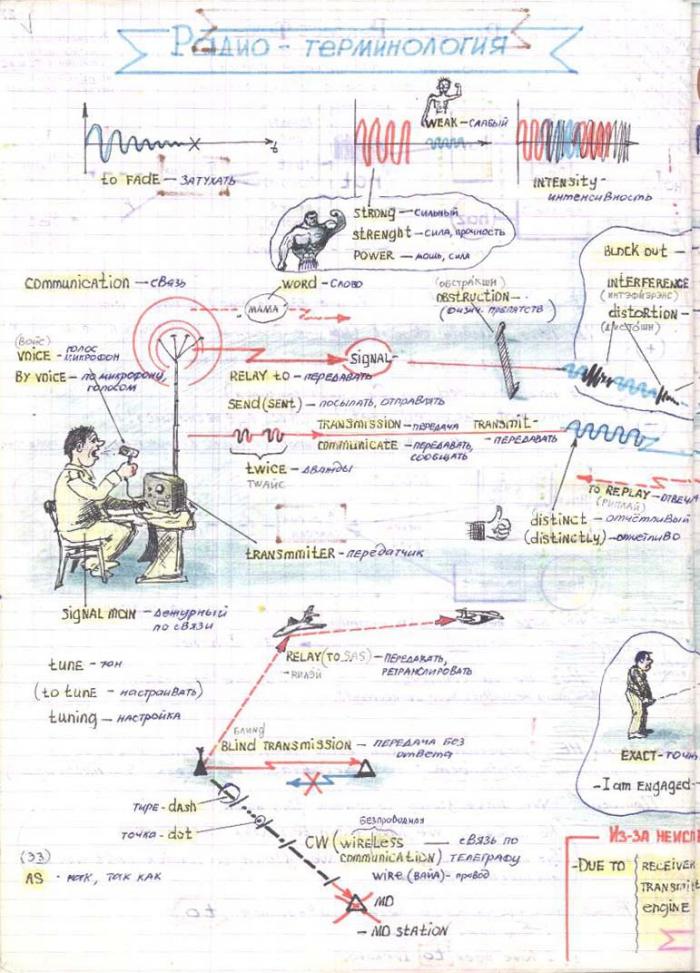 Радио - терминология
WEAK - СЛАБЫЙ
t
to FADE — ЗАТУХАТЬ
INTENSITY -
интенсивность
STRONG — СИЛЬНЫЙ
STRENGHT - СИЛА, ПРОЧНОСТЬ
POWER - МОЩЬ, СИЛА
BLACK OUT -
COMMUNICATION - СВЯЗЬ
WORD - СЛОВО
МАМА
(ОБСТРАКШН)
OBSTRUCTION -
(ФИЗИЧ. ПРЕПЯТСТВ)
INTERFERENCE
(ИНТЭФИЭРЭНС)
distortion -
(ДИСТОШН)
(ВОЙС)
VOICE - ГОЛОС
МИКРОФОН
BY VOICE - ПО МИКРОФОНУ,
ГОЛОСОМ
SIGNAL -
RELAY TO - ПЕРЕДАВАТЬ
SEND (SENT) - ПОСЫЛАТЬ, ОТПРАВЛЯТЬ
TRANSMISSION - ПЕРЕДАЧА
TRANSMIT -
- ПЕРЕДАВАТЬ
COMMUNICATE - ПЕРЕДАВАТЬ,
СООБЩАТЬ
twice - ДВАЖДЫ
ТУАЙС
TO REPLAY - ОТВЕЧА
(РИПЛАЙ)
distinct - ОТЧЁТЛИВЫЙ
(distinctly) - ОТЧЕТЛИВО
TRANSMMITER - ПЕРЕДАТЧИК
SIGNAL MAN - ДЕЖУРНЫЙ
ПО СВЯЗИ
RELAY (TO SAS) - ПЕРЕДАВАТЬ,
РЕТРАНСЛИРОВАТЬ
- РИЛЭЙ
tune - ТОН
(to tune - НАСТРАИВАТЬ)
tuning - НАСТРОЙКА
БЛАИНД
BLIND TRANSMISSION - ПЕРЕДАЧА БЕЗ
ответа
EXACT - ТОЧН
- I am ENGAGED -
ТИРЕ - dASH
ТОЧКА - dot
БЕЗПРОВОДНАЯ
CW (WIRELESS — СВЯЗЬ ПО
COMMUNICATION) ТЕЛЕГРАФУ
WIRE (ВАЙА) - ПРОВОД
(33)
AS - так, так как
MD
- MD STATION
ИЗ-ЗА НЕИСП
- DUE TO
RECEIVER
TRANSMIT
ENGINE